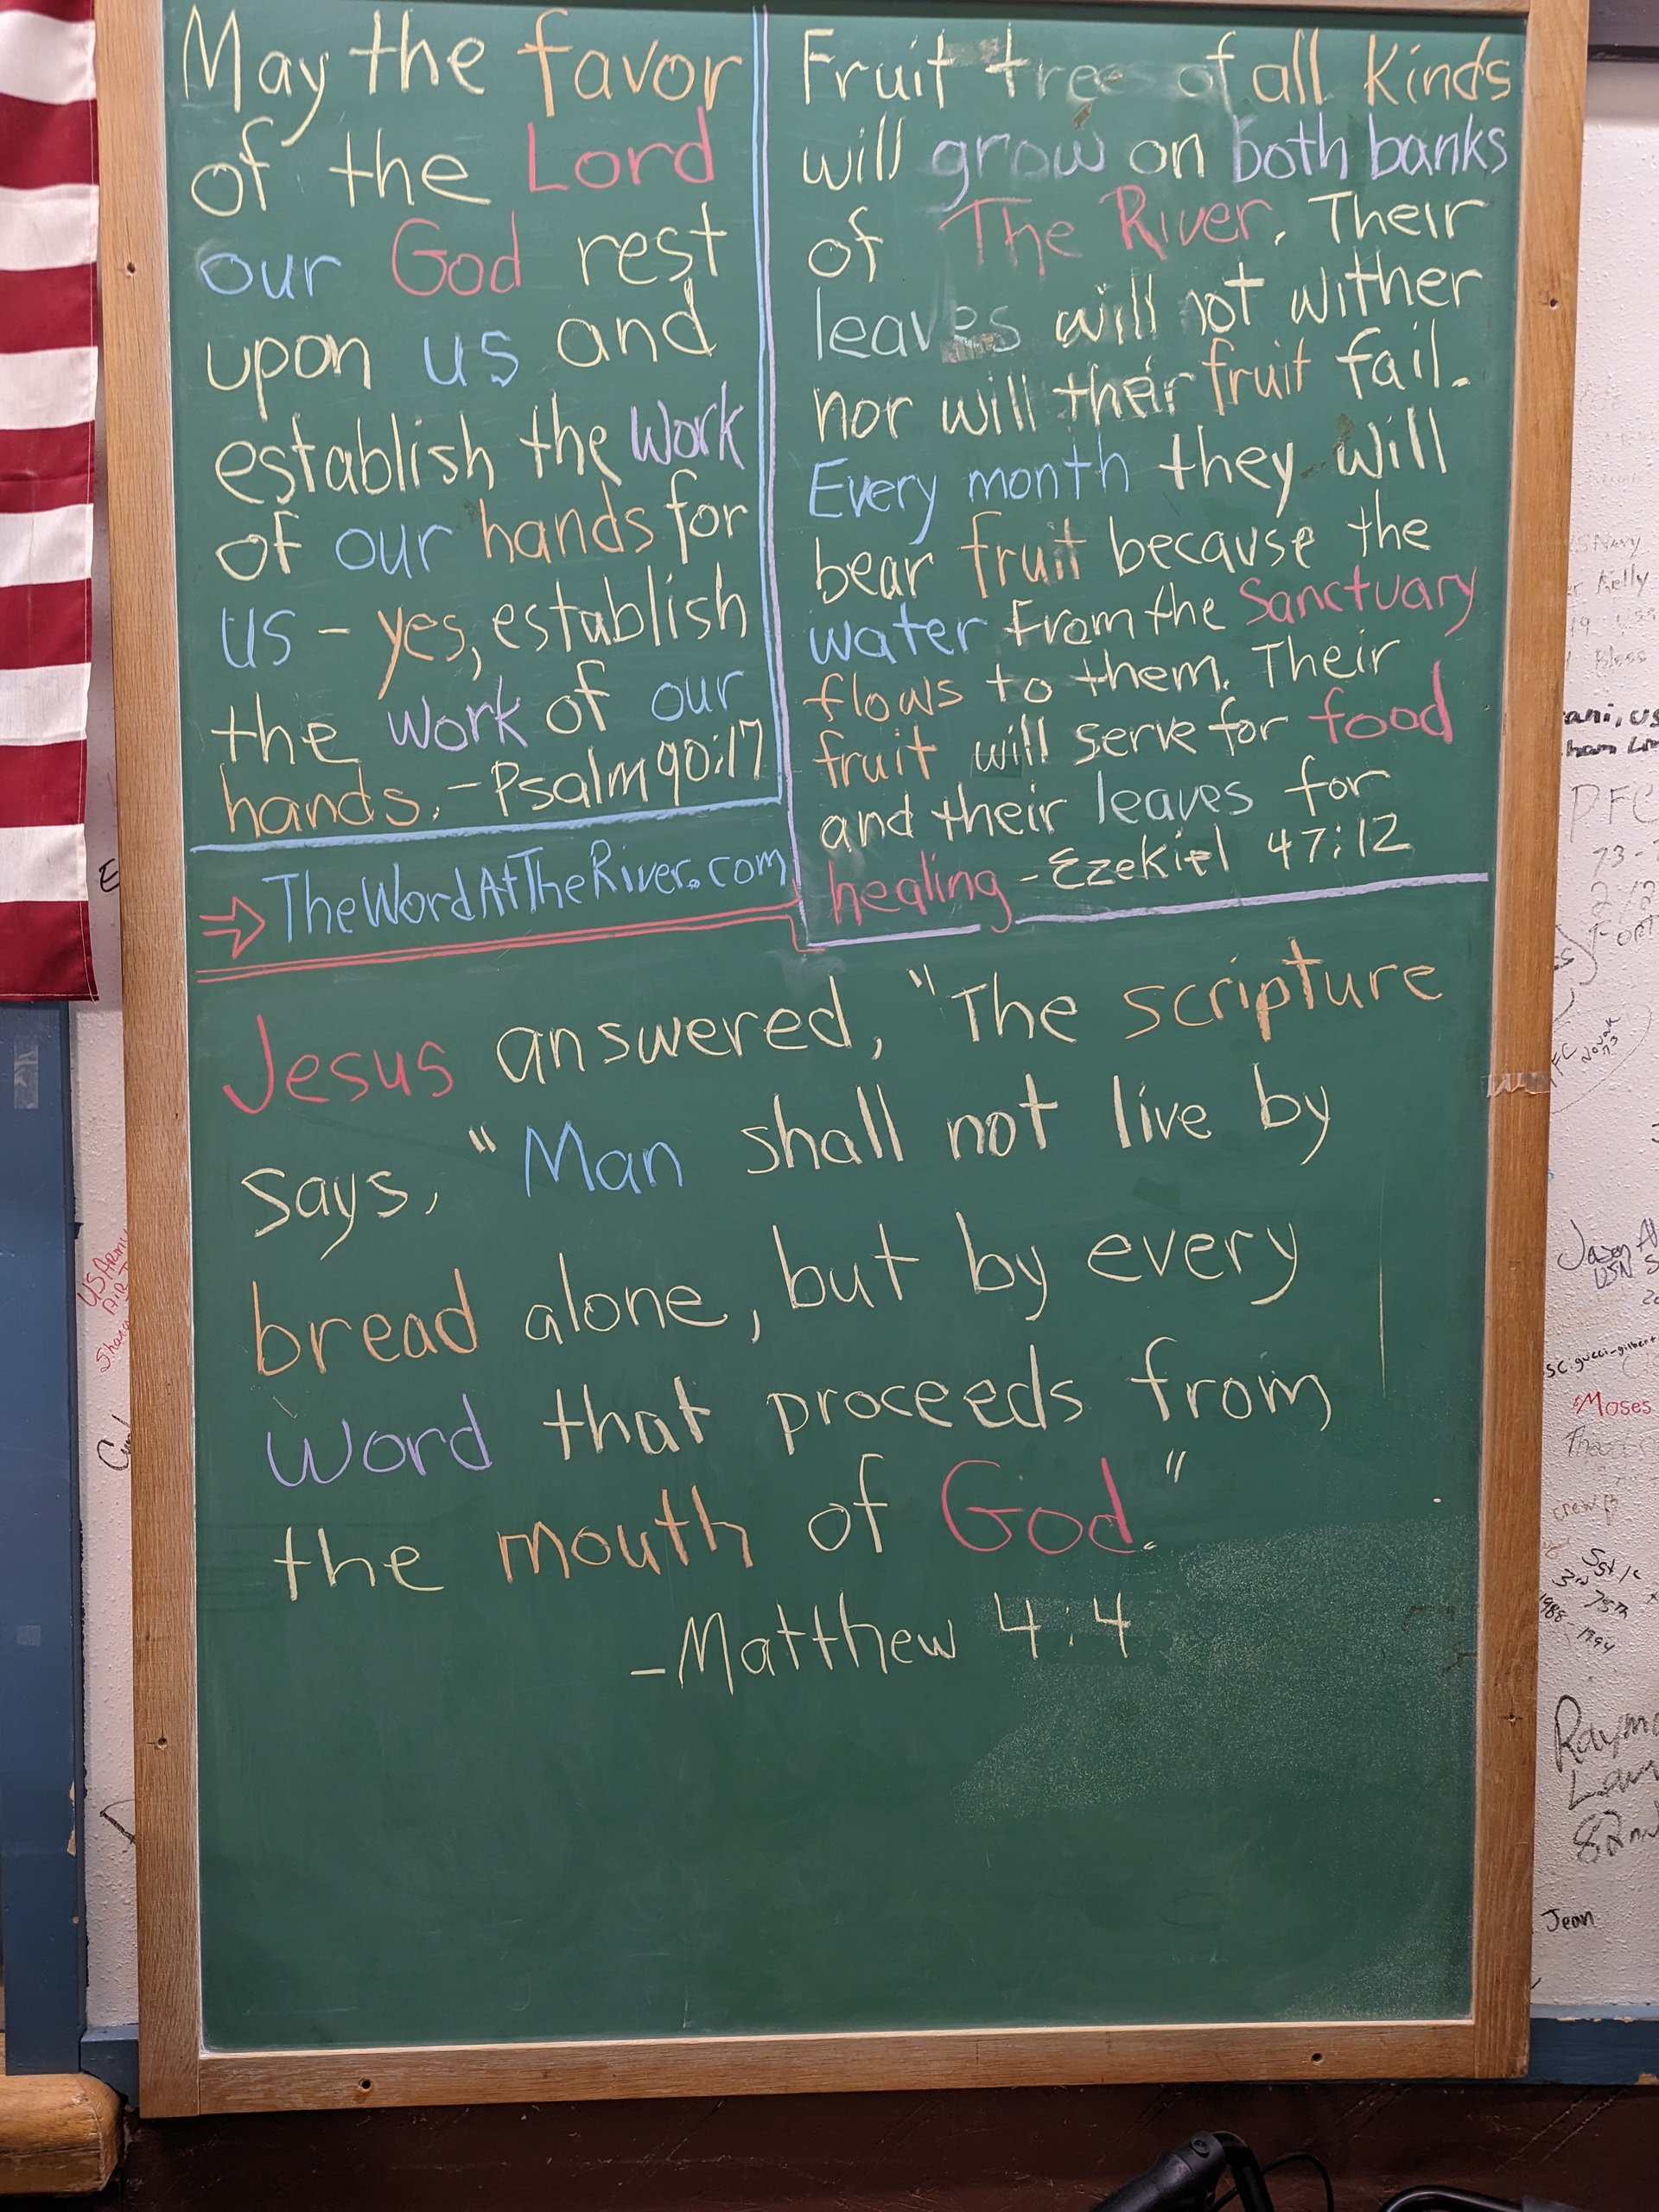 May the favor
of the Lord
our God rest
upon us and
establish the Work
of our hands for
us - yes, establish
the work of our
hands. - Psalm 90:17
TheWordAtTheRiver.com
Fruit trees of all Kinds
will grow on both banks
of The River. Their
leaves will not wither
nor will their fruit fail.
Every month they will
bear fruit because the
water from the Sanctuary
flows to them. Their
fruit will serve for food
and their leaves for
healing - Ezekiel 47:12
Jesus answered, "The scripture
says, "Man shall not live by
bread alone, but by every
word that proceeds from
the mouth of God."
- Matthew 4:4
US ARMY
Kelly
Bless
PFC
Jason
USN
Moses
1988
1994
Jean